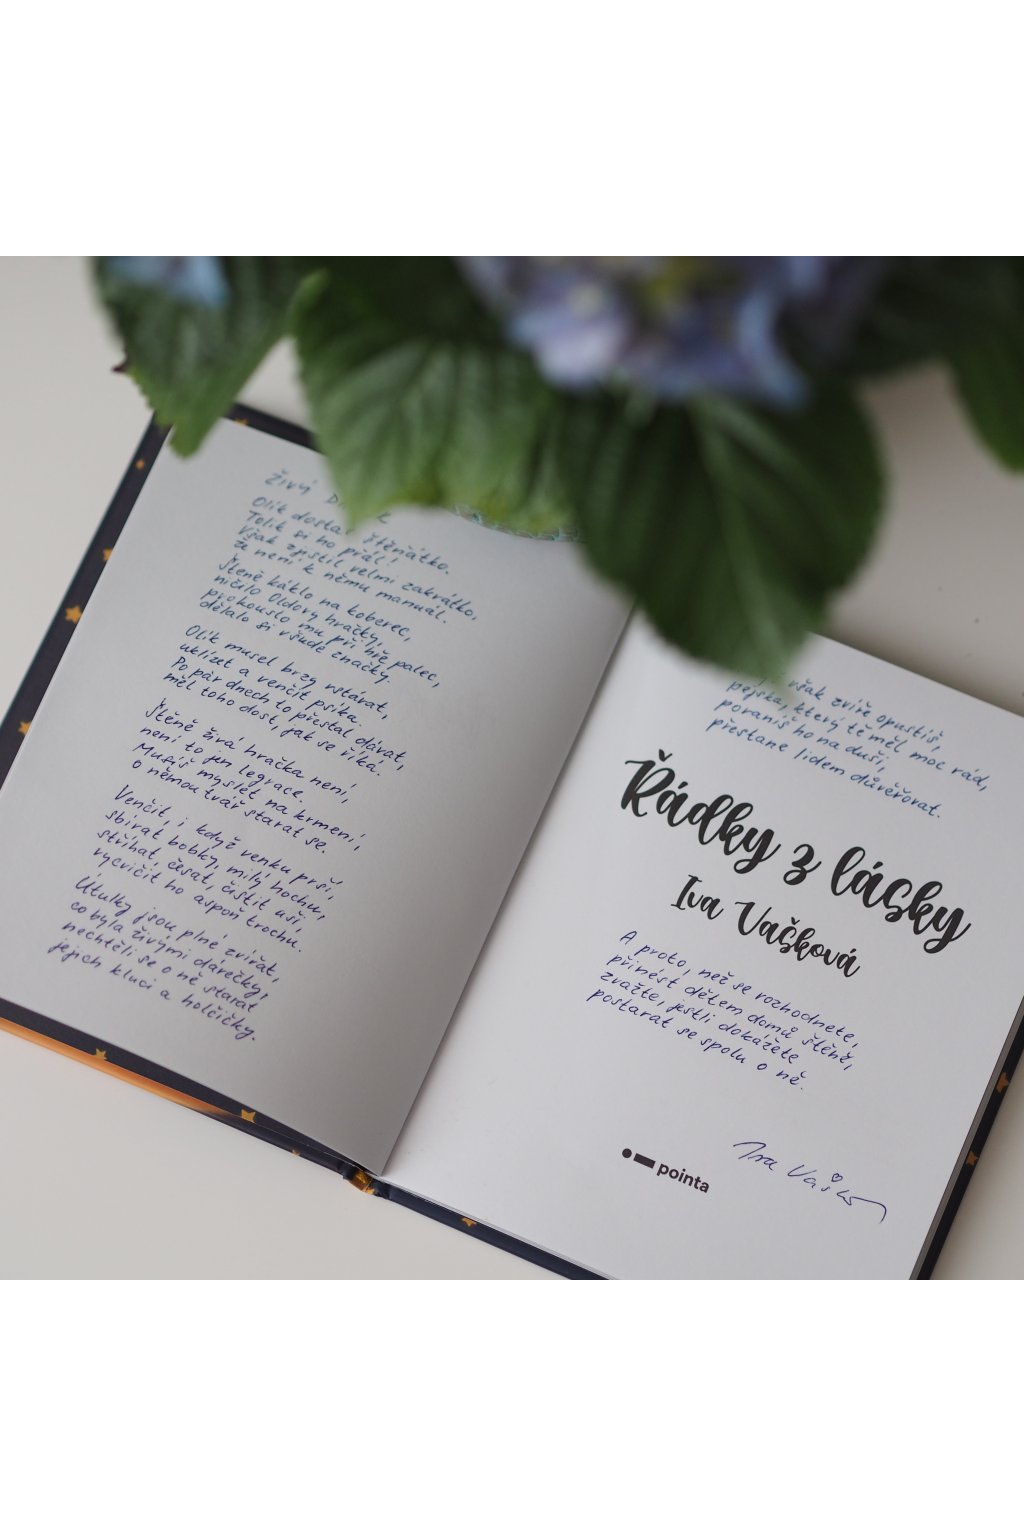 Živý
Olík dostal štěňátko.
Tolik si ho přál!
Však zjistil velmi zakrátko,
že není k němu manuál.
Štěně káklo na koberec,
ničilo Oldovy hračky,
prokouslo mu při hře palec,
dělalo si všude značky.
Olík musel brzy vstávat,
uklízet a venčit psíka.
Po pár dnech to přestal dávat,
měl toho dost, jak se říká.
Štěně živá hračka není,
není to jen legrace.
Musíš myslet na krmení,
o němou tvář starat se.
Venčit, i když venku prší,
sbírat bobky, milý hochu,
stříhat, česat, čistit uši,
vycvičit ho aspoň trochu.
Útulky jsou plné zvířat,
co byla živými dárečky,
nechtěli se o ně starat
jejich kluci a holčičky.
však zvíře opustíš,
pejska, který tě měl moc rád,
poraníš ho na duši,
přestane lidem důvěřovat.
Řádky z lásky
Iva Vašková
A proto, než se rozhodnete,
přinést dětem domů štěně,
zvažte, jestli dokážete
postarat se spolu o ně.
Iva Vašková
pointa